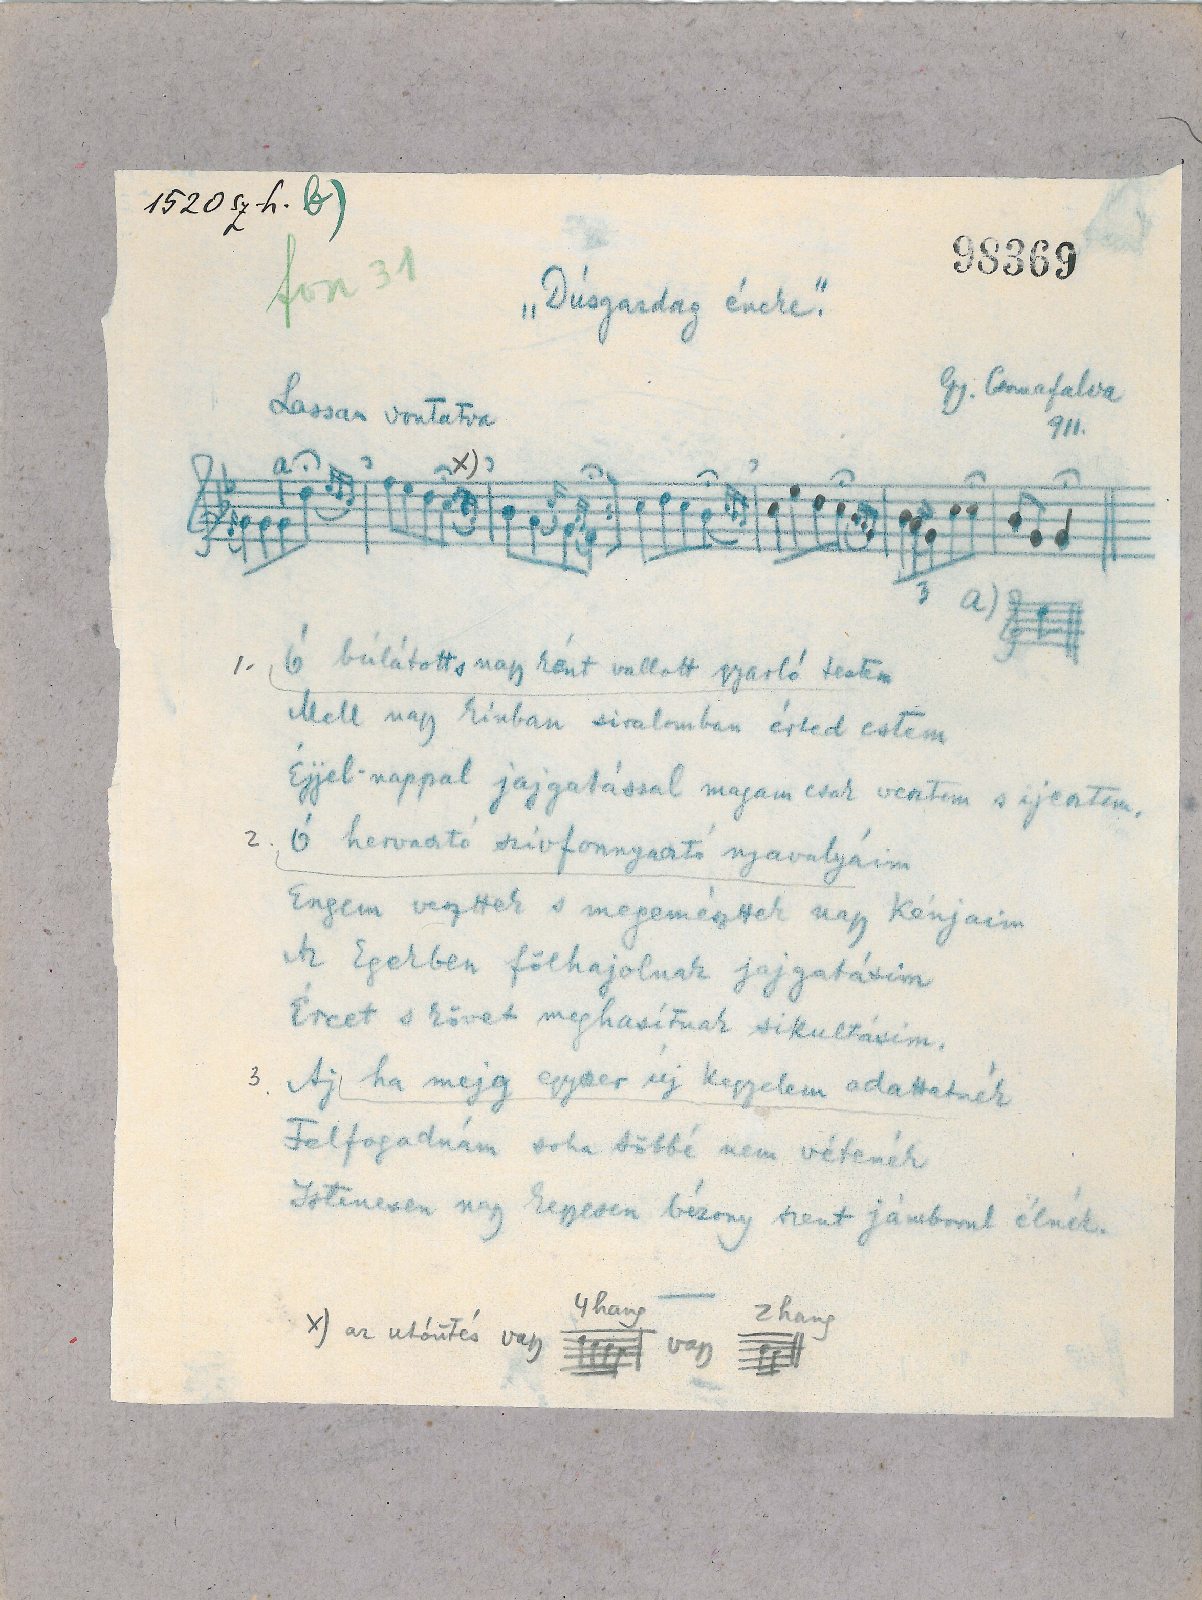 1520 sz. h. b)
98369
fon 31
„Dúsgazdag éneke."
Gy. Csomafalva
911.
Lassan vontatva
a x)
3
a)
1. Ó búlátotts nagy ként vallott gyarló testem
Mell nagy kínban siralomban érted estem
Éjjel-nappal jajgatással magam csak vertem s ijesztem.
2. Ó hervasztó szívfonnyasztó nyavalyáim
Engem veszttek s megemészttek nagy kénjaim
Az Egekben fölhajolnak jajgatásim
Ércet s követ meghasítnak sikultásim.
3. Aj ha mejg egyszer új kegyelem adattatnék
Felfogadnám soha többé nem véténék
Istenesen nagy kegyesen bézony szent jámborul élnék.
x) az utóütés vagy 4 hang vagy 2 hang